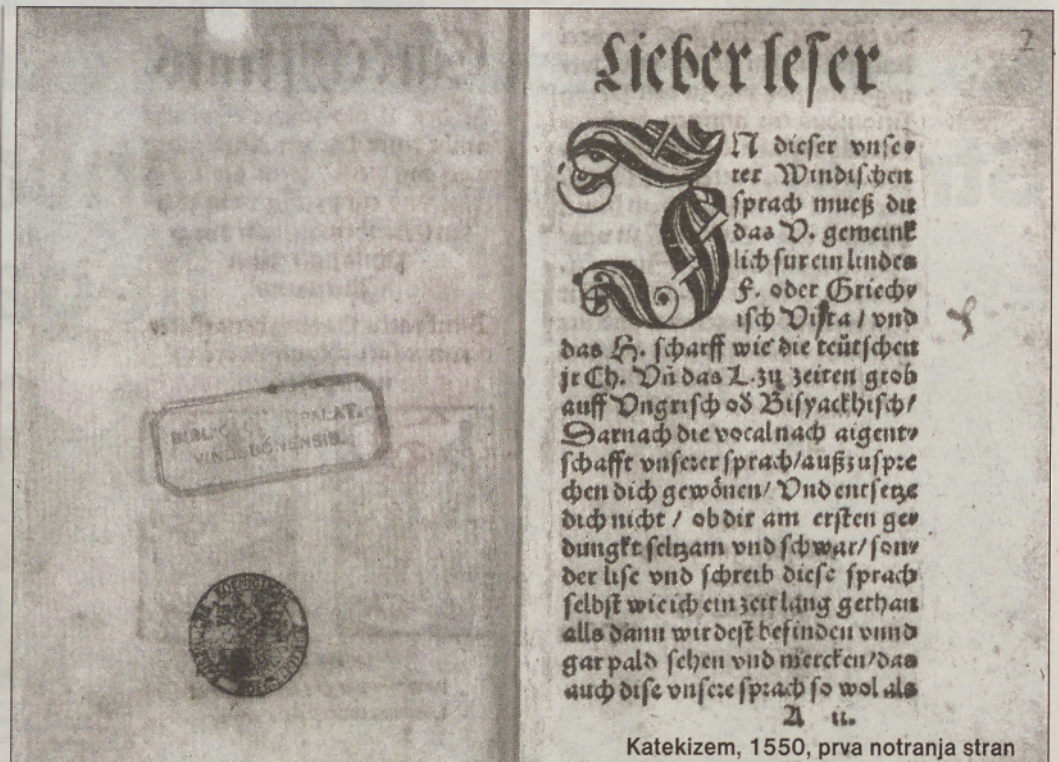 2
Lieber leſer
IN dieſer vnſe⸗
rer Windiſchen
ſprach mueß du
das V. gemeink
lich fur ein lindes
F. oder Griech⸗
iſch Vita / vnd
das H. ſcharff wie die teütſchen
jr Ch. Vn̄ das L. zu̍ zeiten grob
auff Vngriſch od Biſyackhiſch/
Darnach die vocal nach aigent⸗
ſchafft vnſerer ſprach/außzuſpre
chen dich gewönen/ Vnd entſetze
dich nicht / ob dir am erſten ge⸗
dungkt ſeltzam vnd ſchwar/ ſon⸗
der liſe vnd ſchreib dieſe ſprach
ſelbſt wie ich ein zeit lang gethan
alls dann wirdeſt befinden vnnd
gar pald ſehen vnd mercken/das
auch diſe vnſere ſprach ſo wol als
A ii.
Katekizem, 1550, prva notranja stran